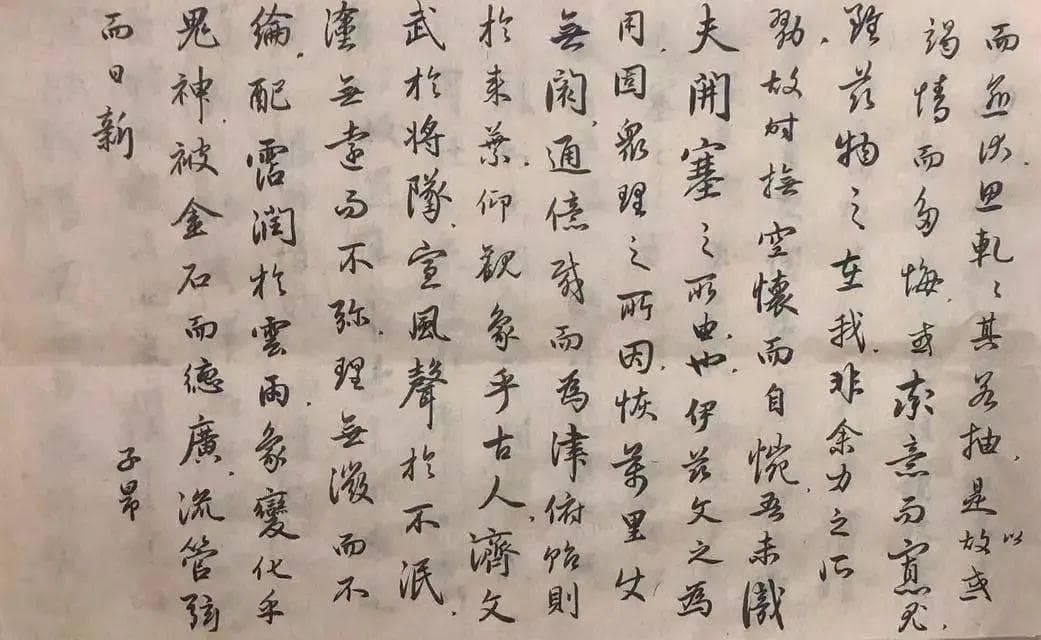 而愈伏,思軋〻其若抽,是故或
以
竭情而多悔,或率意而寡尤,
雖茲物之在我,非余力之所
勠,故時撫空懷而自惋,吾未識
夫開塞之所由也,伊茲文之為
用,固眾理之所因,恢萬里使
無閡,通億載而為津俯貽則
於來葉,仰觀象乎古人,濟文
武於將隊,宣風聲於不泯,
塗無遠而不弥,理無微而不
綸,配霑潤於雲雨,象變化乎
鬼神,被金石而德廣,流管弦
而日新
子昂